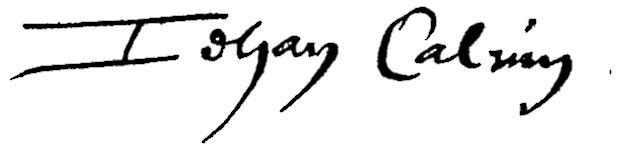 Iehan Calvin